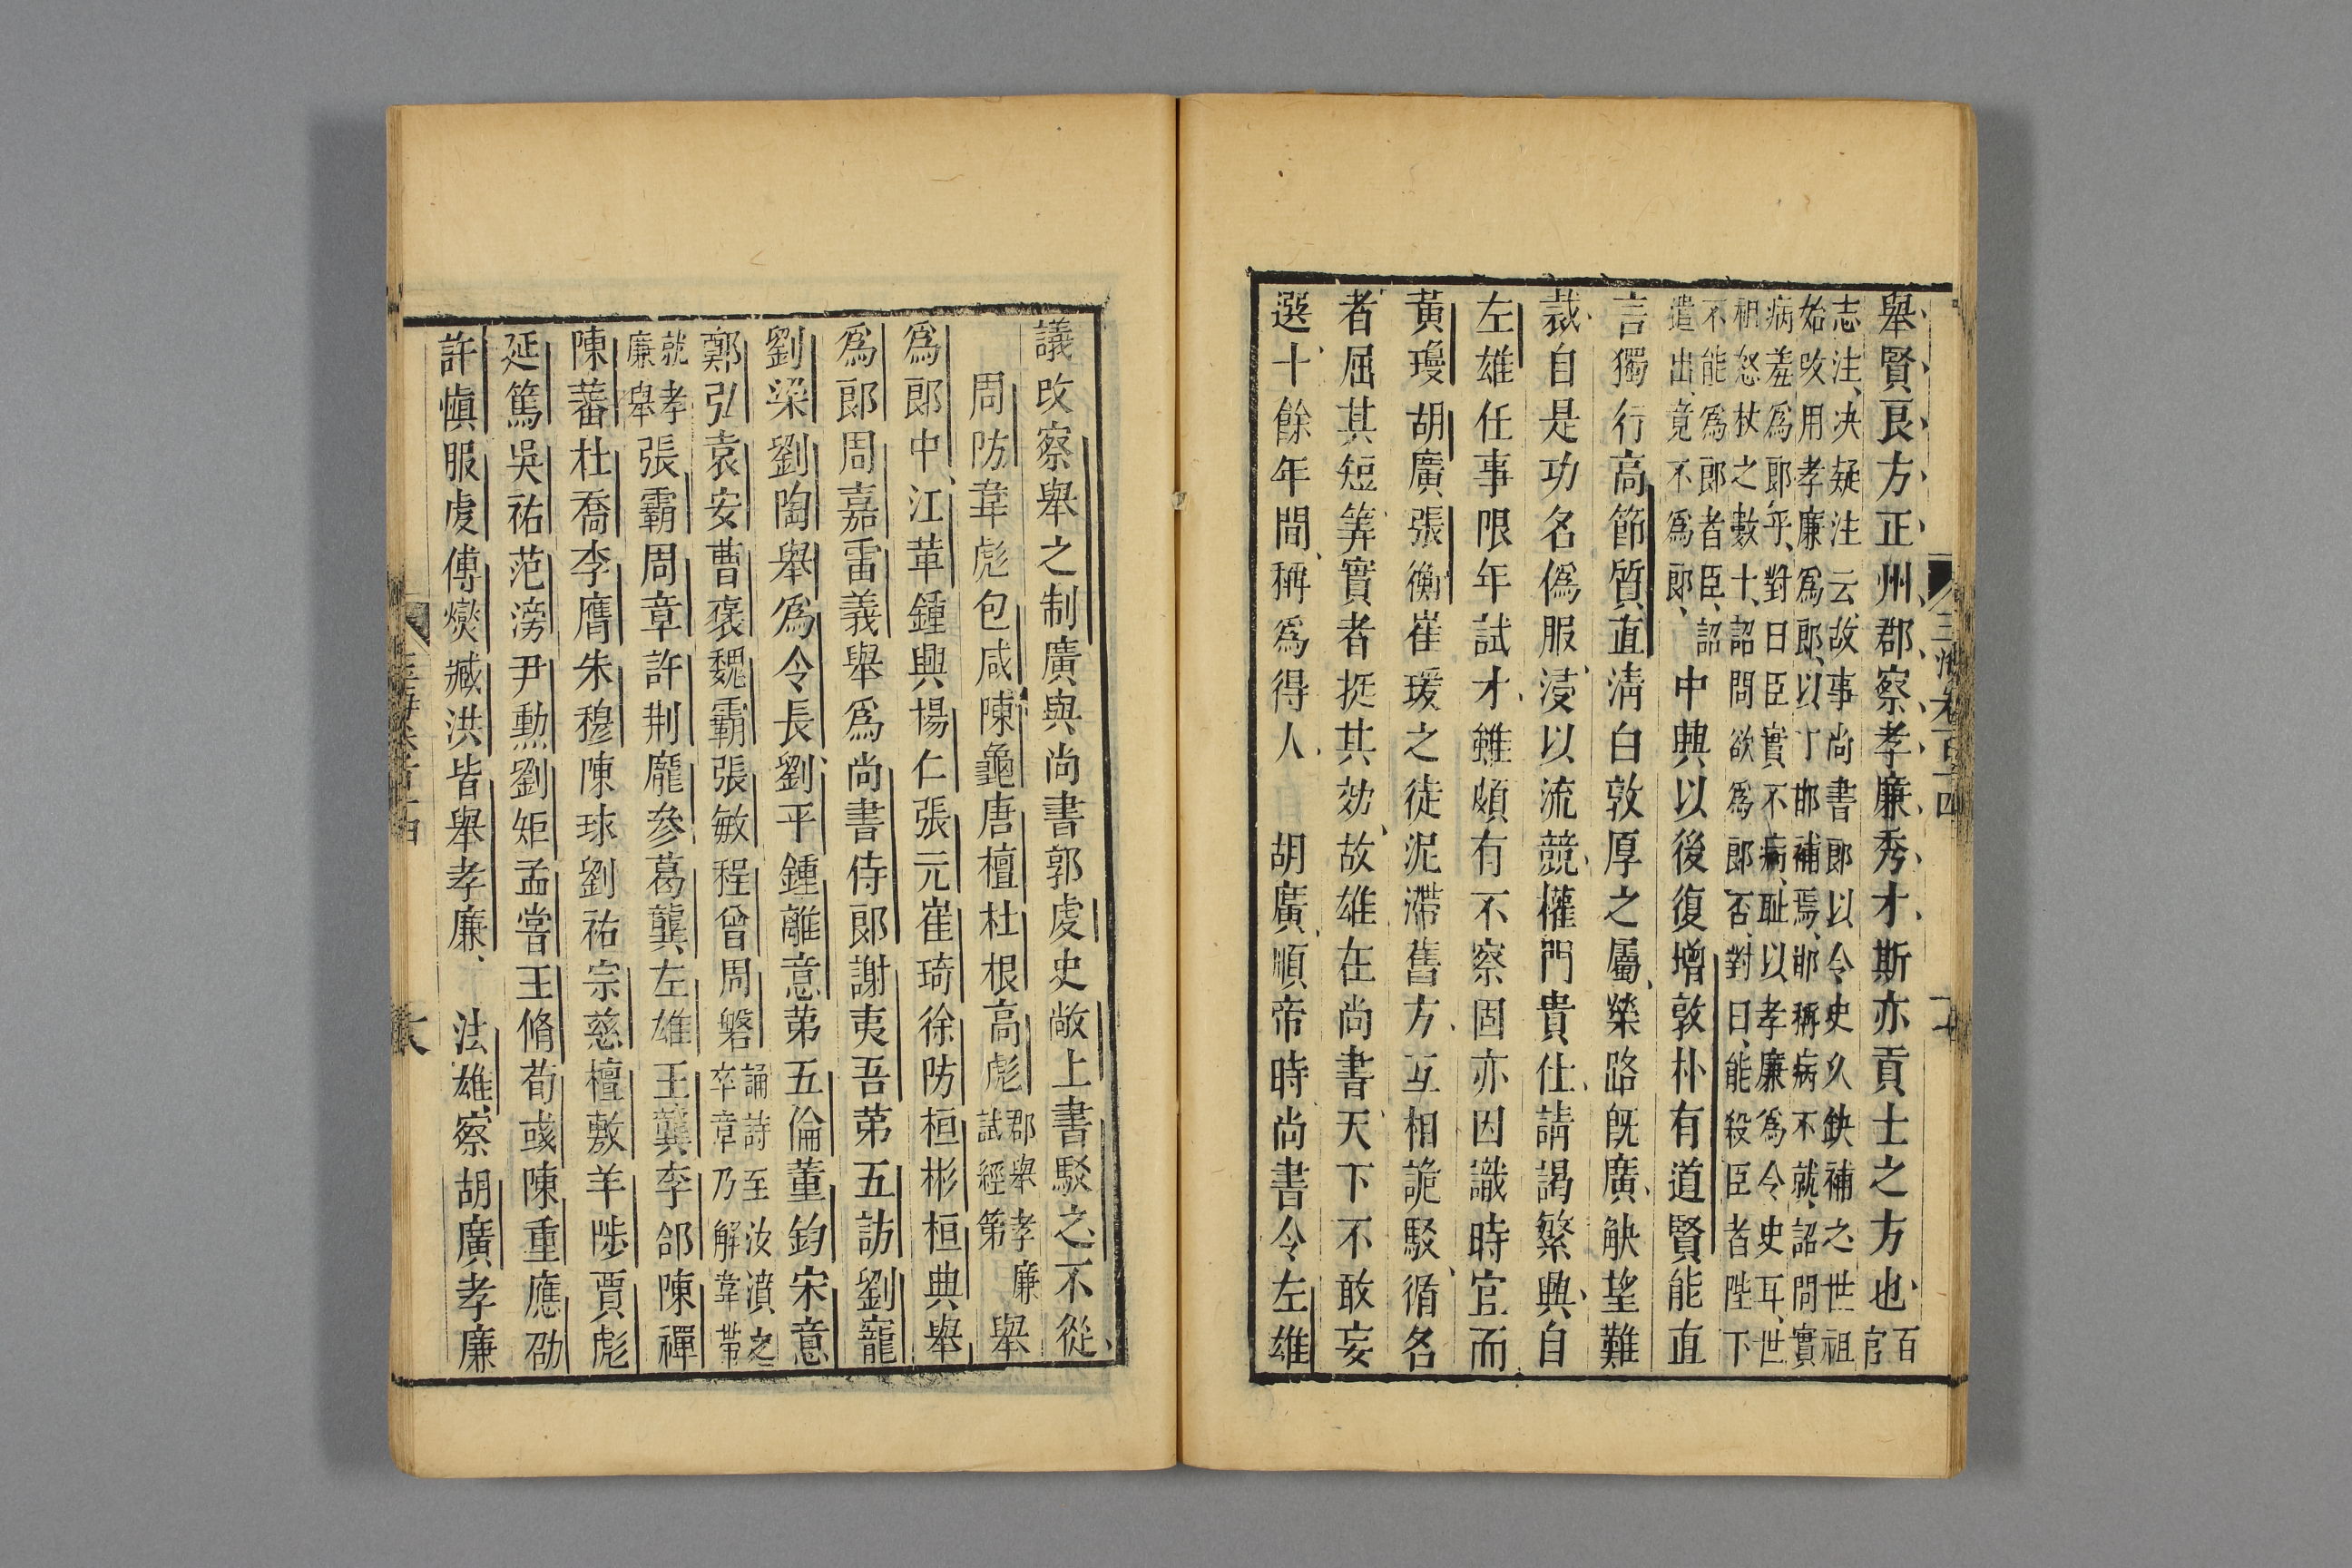 舉賢良方正州郡察孝廉秀才斯亦貢士之方也百官
志注決疑注云故事尚書郎以令史久缺補之世祖
始改用孝廉爲郎以丁邯補焉邯稱病不就詔問實
病羞爲郎乎對曰臣實不病耻以孝廉爲令史耳世
祖怒杖之數十詔問欲爲郎否對曰能殺臣者陛下
不能爲郎者臣詔
遣出竟不爲郎
中興以後復增敦朴有道賢能直
言獨行高節質直淸白敦厚之屬榮路旣廣觖望難
裁自是功名僞服浸以流競權門貴仕請謁繁興自
左雄任事限年試才雖頗有不察固亦因識時宜而
黃瓊胡廣張衡崔瑗之徒泥滯舊方互相詭駁循名
者屈其短筭實者挺其効故雄在尚書天下不敢妄
選十餘年間稱爲得人　胡廣順帝時尚書令左雄
議改察舉之制廣與尚書郭虔史敞上書駁之不從
周防韋彪包咸陳龜唐檀杜根高彪郡舉孝廉試經第舉
爲郎中江革鍾興楊仁張元崔琦徐防桓彬桓典舉
爲郎周嘉雷義舉爲尚書侍郎謝夷吾第五訪劉寵
劉梁劉陶舉爲令長劉平鍾離意第五倫董鈞宋意
鄭弘袁安曹褒魏霸張敏程曾周磐誦詩至汝濆之卒章乃解韋帶
就孝廉舉張霸周章許荆龐參葛龔左雄王龔李郃陳禪
陳蕃杜喬李膺朱穆陳球劉祐宗慈檀敷羊陟賈彪
延篤吳祐范滂尹勳劉矩孟嘗王脩荀彧陳重應劭
許愼服虔傅燮臧洪皆舉孝廉　法雄察胡廣孝廉